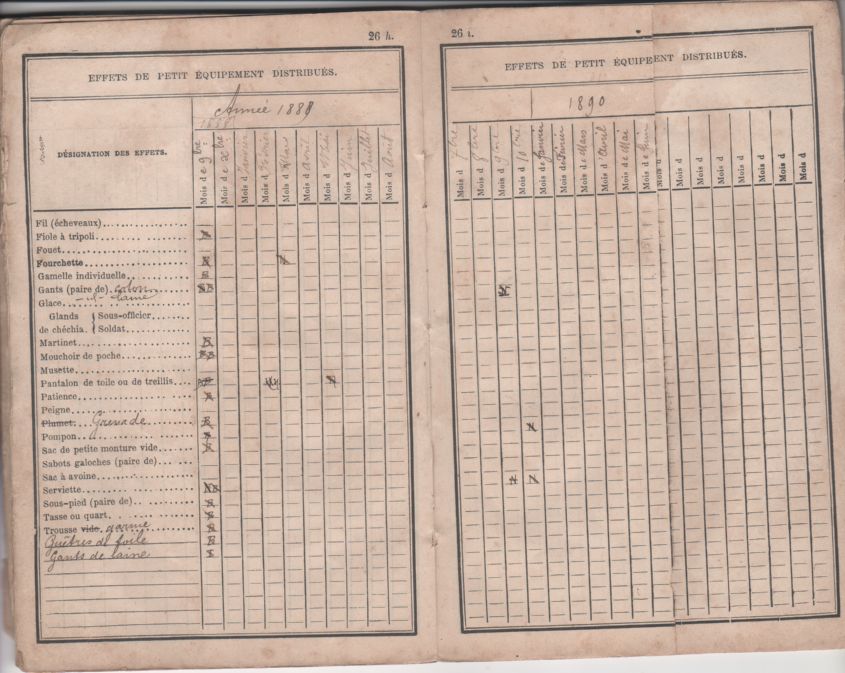 26 h.
EFFETS DE PETIT ÉQUIPEMENT DISTRIBUÉS.
Année 1889
1888
DÉSIGNATION DES EFFETS.
Mois de 9bre
Mois de Xbre
Mois d Janvier
Mois d Février
Mois d Mars
Mois d Avril
Mois d Mai
Mois d Juin
Mois d Juillet
Mois d Août
Fil (écheveaux)
Fiole à tripoli
Fouet
Fourchette
Gamelle individuelle
Gants (paire de) coton
Glace
Glands de chéchia. { Sous-officier
Soldat
Martinet
Mouchoir de poche
Musette
Pantalon de toile ou de treillis
Patience
Peigne
Plumet. Grenade
Pompon
Sac de petite monture vide
Sabots galoches (paire de)
Sac à avoine
Serviette
Sous-pied (paire de)
Tasse ou quart
Trousse vide. garnie
Guêtres de toile
Gants de laine
26 i.
EFFETS DE PETIT ÉQUIPEMENT DISTRIBUÉS.
1890
Mois d 7bre
Mois d 8bre
Mois d 9bre
Mois d 10bre
Mois de Janvier
Mois de Février
Mois de Mars
Mois d'Avril
Mois de Mai
Mois de Juin
Mois d
Mois d
Mois d
Mois d
Mois d
Mois d
Mois d
Mois d